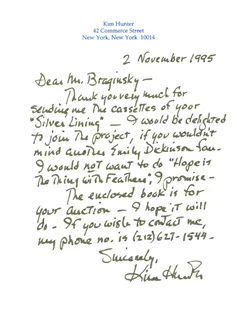 Kim Hunter
42 Commerce Street
New York, New York 10014
2 November 1995
Dear Mr. Braginsky —
Thank you very much for
sending me the cassettes of your
"Silver Lining" — I would be delighted
to join the project, if you wouldn't
mind another Emily Dickinson fan.
I would not want to do "Hope is
the Thing with Feathers", I promise —
The enclosed book is for
your auction — I hope it will
do — If you wish to contact me,
my phone no. is (212) 627-1544 —
Sincerely,
Kim Hunter